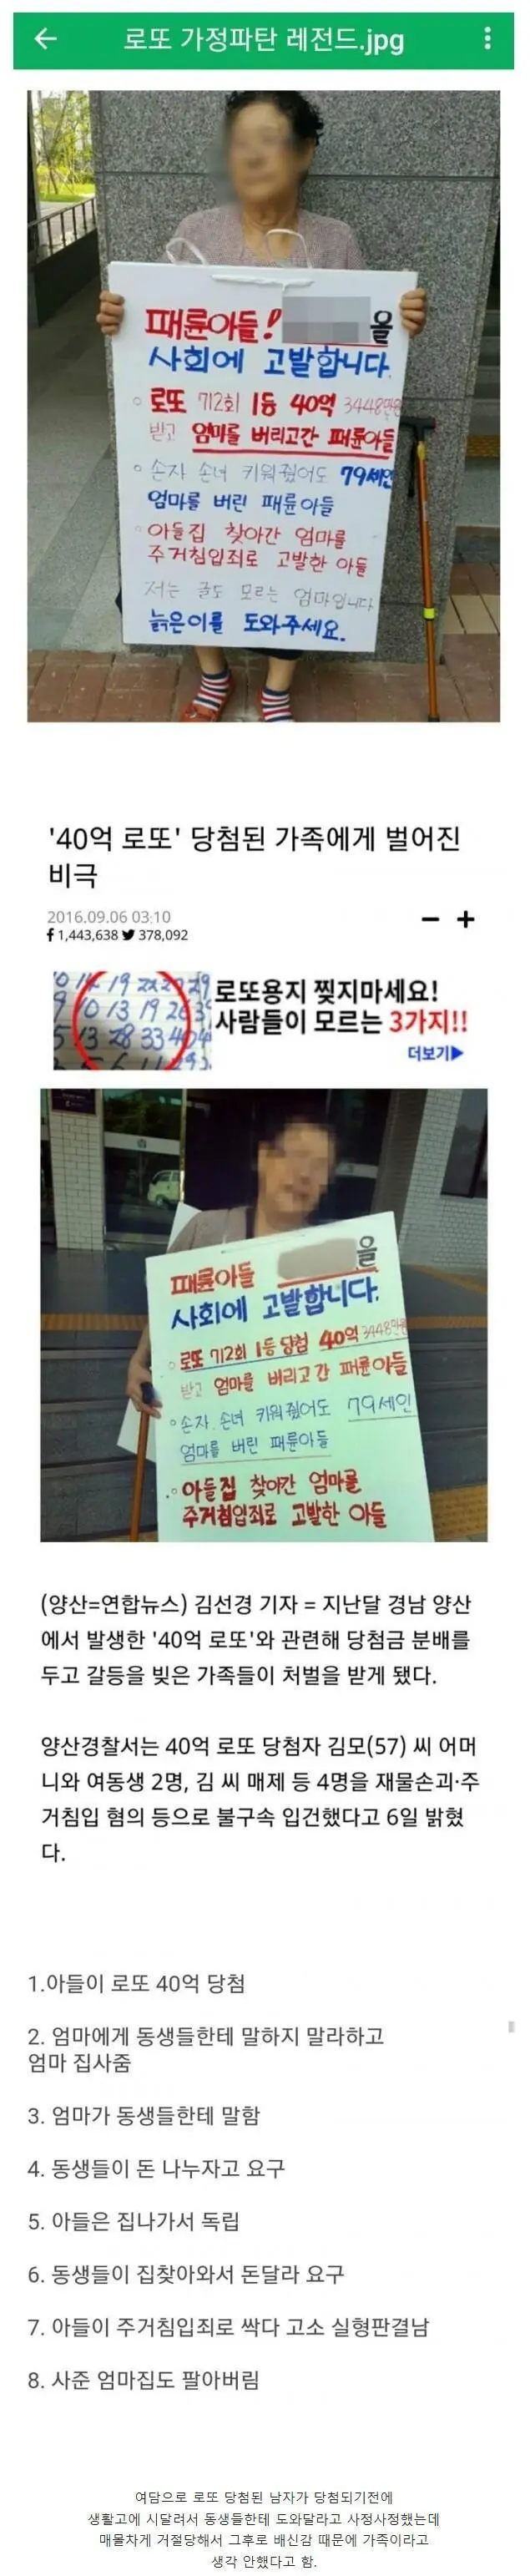 로또 가정파탄 레전드.jpg
패륜아들! 을
사회에 고발합니다.
로또 712회 1등 40억 3448만원
받고 엄마를 버리고간 패륜아들
손자 손녀 키워줬어도 79세인
엄마를 버린 패륜아들
아들집 찾아간 엄마를
주거침입죄로 고발한 아들
저는 글도 모르는 엄마입니다
늙은이를 도와주세요.
'40억 로또' 당첨된 가족에게 벌어진
비극
2016.09.06 03:10
1,443,638 378,092
로또용지 찢지마세요!
사람들이 모르는 3가지!!
더보기▶
패륜아들 을
사회에 고발합니다.
로또 712회 1등당첨 40억 3448만원
받고 엄마를 버리고간 패륜아들
손자.손녀 키워줬어도 79세인
엄마를 버린 패륜아들
아들집 찾아간 엄마를
주거침입죄로 고발한 아들
(양산=연합뉴스) 김선경 기자 = 지난달 경남 양산
에서 발생한 '40억 로또'와 관련해 당첨금 분배를
두고 갈등을 빚은 가족들이 처벌을 받게 됐다.
양산경찰서는 40억 로또 당첨자 김모(57) 씨 어머
니와 여동생 2명, 김 씨 매제 등 4명을 재물손괴·주
거침입 혐의 등으로 불구속 입건했다고 6일 밝혔
다.
1.아들이 로또 40억 당첨
2. 엄마에게 동생들한테 말하지 말라하고
엄마 집사줌
3. 엄마가 동생들한테 말함
4. 동생들이 돈 나누자고 요구
5. 아들은 집나가서 독립
6. 동생들이 집찾아와서 돈달라 요구
7. 아들이 주거침입죄로 싹다 고소 실형판결남
8. 사준 엄마집도 팔아버림
여담으로 로또 당첨된 남자가 당첨되기전에
생활고에 시달려서 동생들한테 도와달라고 사정사정했는데
매몰차게 거절당해서 그후로 배신감 때문에 가족이라고
생각 안했다고 함.